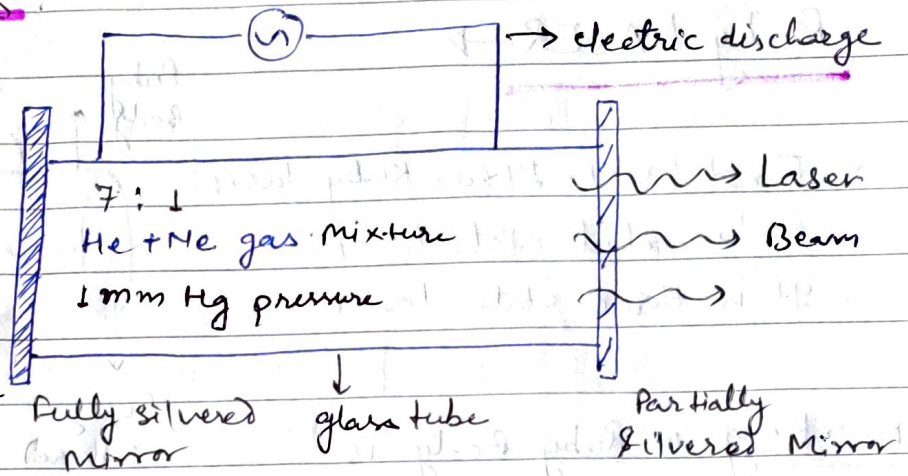 → electric discharge
7 : 1
He + Ne gas Mixture
1 mm Hg pressure
Laser
Beam
Fully silvered
Mirror
glass tube
Partially
Silvered Mirror